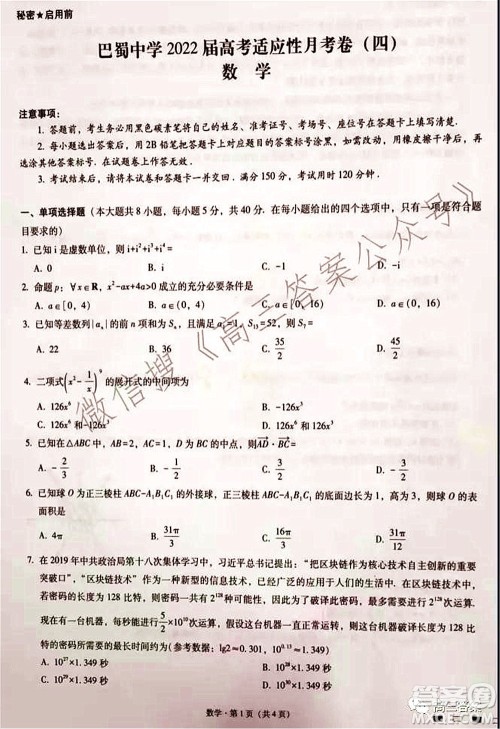 秘密★启用前
巴蜀中学 2022 届高考适应性月考卷（四）
数 学
注意事项：
1. 答题前，考生务必用黑色碳素笔将自己的姓名、准考证号、考场号、座位号在答题卡上填写清楚.
2. 每小题选出答案后，用 2B 铅笔把答题卡上对应题目的答案标号涂黑，如需改动，用橡皮擦干净后，再
选涂其他答案标号. 在试题卷上作答无效.
3. 考试结束后，请将本试卷和答题卡一并交回. 满分 150 分，考试用时 120 分钟.
一、单项选择题（本大题共 8 小题，每小题 5 分，共 40 分. 在每小题给出的四个选项中，只有一项是符合题
目要求的）
1. 已知 i 是虚数单位，则 i+i²+i³+i⁴=
A. 0 B. i C. -1 D. -i
2. 命题 p：∀x∈R，x²-ax+4a>0 成立的充分必要条件是
A. a∈[0，4) B. a∈(0，4) C. a∈[0，16) D. a∈(0，16)
3. 已知等差数列{aₙ}的前 n 项和为 Sₙ，且满足 1，S₁₃=52，则 S₇=
A. 22 B. 36 C. 35/2 D. 45/2
4. 二项式(x²-1/x)⁹的展开式的中间项为
A. 126x⁶ B. -126x³
C. 126x⁶ 和-126x³ D. 126x³ 和
5. 已知在△ABC 中，AB=2，AC=1，D 为 BC 的中点，则AD·BC=
A. -2/3 B. 2/3 C. -3/2 D. 3/2
6. 已知球 O 为正三棱柱 ABC-A₁B₁C₁ 的外接球，正三棱柱 ABC-A₁B₁C₁ 的底面边长为 1，高为 3，则球 O 的表
面积是
A. 4π B. 31π/3 C. 16π/3 D. 31π/12
7. 在 2019 年中共政治局第十八次集体学习中，习近平总书记提出：“把区块链作为核心技术自主创新的重要
突破口”，“区块链技术”作为一种新型的信息技术，已经广泛的应用于人们的生活中. 在区块链技术中，
若密码的长度为 128 比特，则密码一共有 2¹²⁸ 种可能，因此为了破译此密码，最多需要进行 2¹²⁸ 次运算.
现在有一台机器，每秒能进行 5/2×10¹⁰ 次运算，假设这台机器一直正常运转，那么这台机器破译长度为 128 比
特的密码所需要的最长时间约为（参考数据：lg2≈0.301，10^0.13≈1.349）
A. 10²⁷×1.349 秒 B. 10²⁸×1.349 秒
C. 10²⁹×1.349 秒 D. 10³⁰×1.349 秒
数学·第 1 页（共 4 页）
微信搜《高三答案公众号》
高三答案